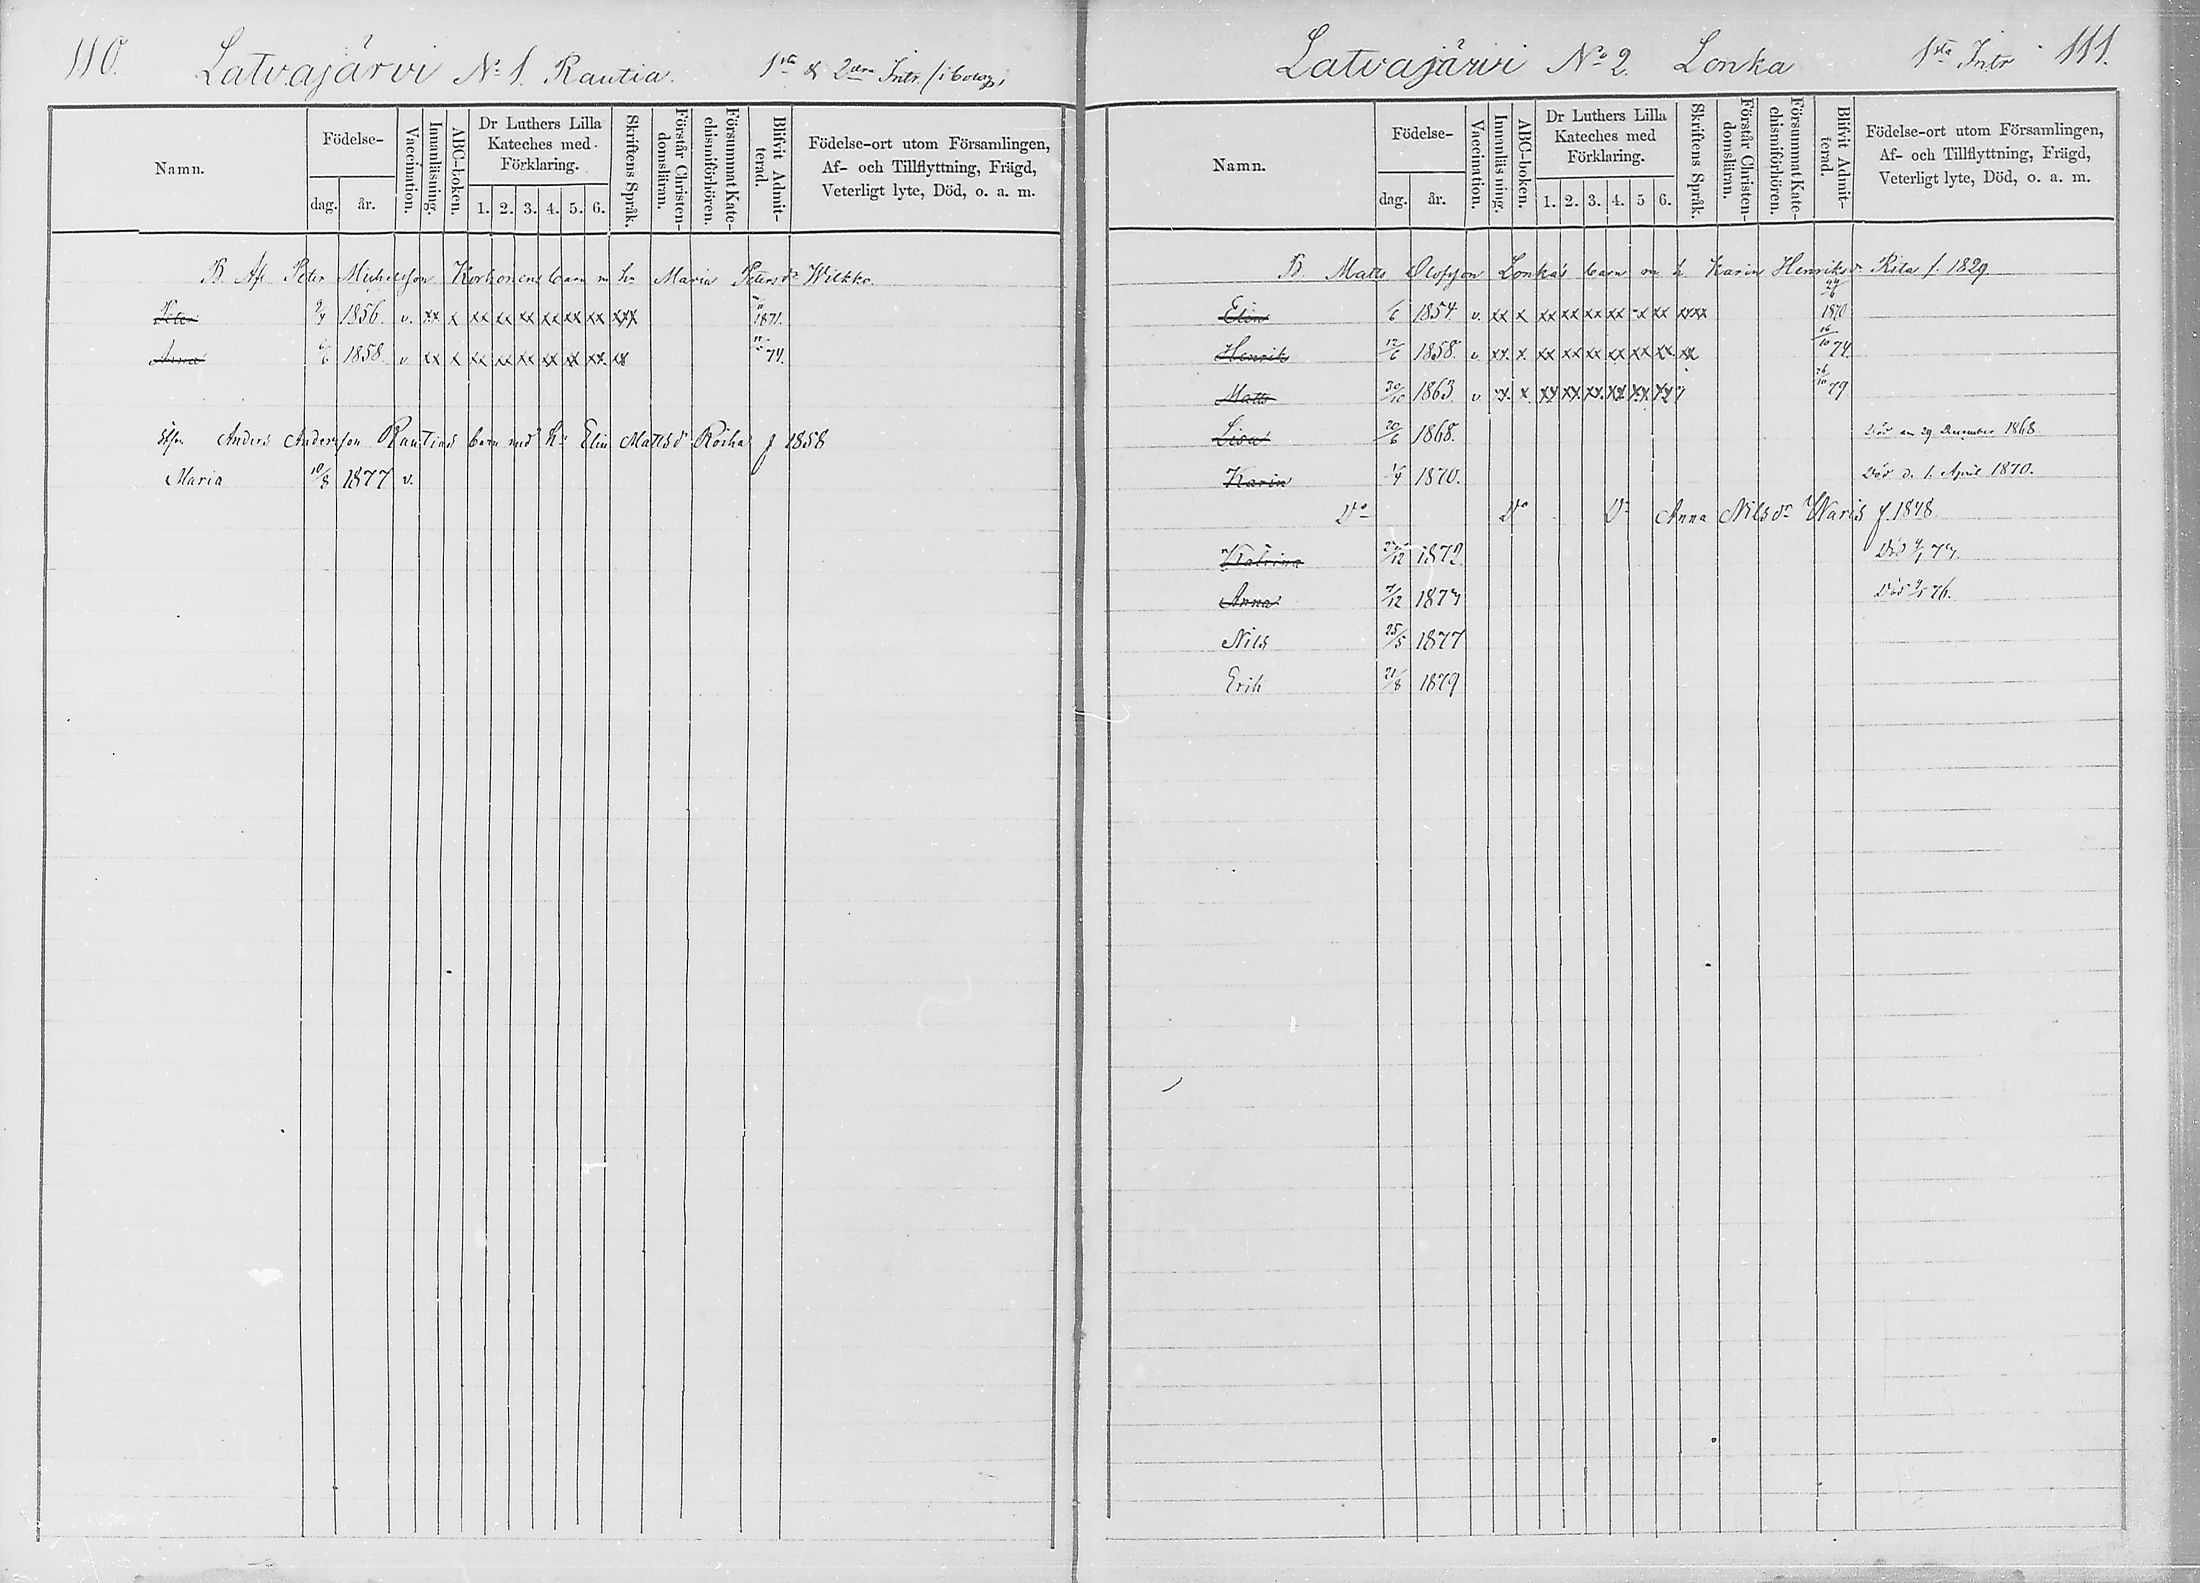 110. Latvajärvi No 1. Rautia. 1sta & 2dra Intr.
Namn.
Födelse-
dag. år.
Vaccination.
Innanläsning.
ABC-boken.
Dr Luthers Lilla Kateches med Förklaring.
1. 2. 3. 4. 5. 6.
Skriftens Språk.
Förstår Christen-domsläran.
Försummat Kate-chismiförhören.
Blifvit Admit-terad.
Födelse-ort utom Församlingen, Af- och Tillflyttning, Frägd, Veterligt lyte, Död, o. a. m.
B. Afl. Peter Michelsson Korhonens barn m hu Maria Petersdr Wilkko.
Peter 2/4 1856. v. xx x xx xx xx xx xx xx xxx 1871.
Anna 6/6 1858. v xx x xx xx xx xx xx xx. xx 74.
Anders Andersson Rautias barn med hu Elin Mattsdr Roiha f 1858
Maria 10/8 1877 v.
Latvajärvi No 2. Lonka 1sta Intr 111.
Namn.
Födelse-
dag. år.
Vaccination.
Innanläsning.
ABC-boken.
Dr Luthers Lilla Kateches med Förklaring.
1. 2. 3. 4. 5 6.
Skriftens Språk.
Förstår Christen-domsläran.
Försummat Kate-chismiförhören.
Blifvit Admit-terad.
Födelse-ort utom Församlingen, Af- och Tillflyttning, Frägd, Veterligt lyte, Död, o. a. m.
B. Matts Olofsson Lonkas barn m h Karin Henriksdr Rita f. 1829
Elin 6 1854 v. xx x xx xx xx xx x xx xxx 1870
Henrik 12/6 1858. v. xx. x. xx xx xx xx xx xx. xx 16/10 74.
Matts 30/10 1863. v xx. x. xx xx. xx. xx xx xx 26/10 79
Lisa 20/6 1868. Död den 29 December 1868
Karin 1/4 1870. Död d. 1. April 1870.
Do Do Do Anna Nilsdr Waris f. 1848.
Katrina 27/12 1872.
Anna 7/12 1874
Nils 25/5 1877
Erik 21/8 1879